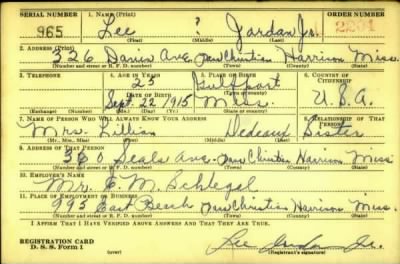 SERIAL NUMBER 1. NAME (Print) ORDER NUMBER
965 Lee ? Jordan Jr.
(First) (Middle) (Last)
2. ADDRESS (Print)
326 Davis Ave. Pass Christian Harrison Miss.
(Number and street or R. F. D. number) (Town) (County) (State)
3. TELEPHONE 4. AGE IN YEARS 5. PLACE OF BIRTH 6. COUNTRY OF CITIZENSHIP
25 Gulfport
DATE OF BIRTH
Sept. 22 1915 Miss. U.S.A.
(Exchange) (Number) (Mo.) (Day) (Yr.) (State or country)
7. NAME OF PERSON WHO WILL ALWAYS KNOW YOUR ADDRESS 8. RELATIONSHIP OF THAT PERSON
Mrs. Lillian Dedeaux Sister
(Mr., Mrs., Miss) (First) (Middle) (Last)
9. ADDRESS OF THAT PERSON
360 Seals Ave. Pass Christian Harrison Miss
(Number and street or R. F. D. number) (Town) (County) (State)
10. EMPLOYER'S NAME
Mr. E. M. Schlegel
11. PLACE OF EMPLOYMENT OR BUSINESS
995 East Beach Pass Christian Harrison Miss.
(Number and street or R. F. D. number) (Town) (County) (State)
I AFFIRM THAT I HAVE VERIFIED ABOVE ANSWERS AND THAT THEY ARE TRUE.
REGISTRATION CARD
D. S. S. Form 1 Lee Jordan Jr.
(Registrant's signature)